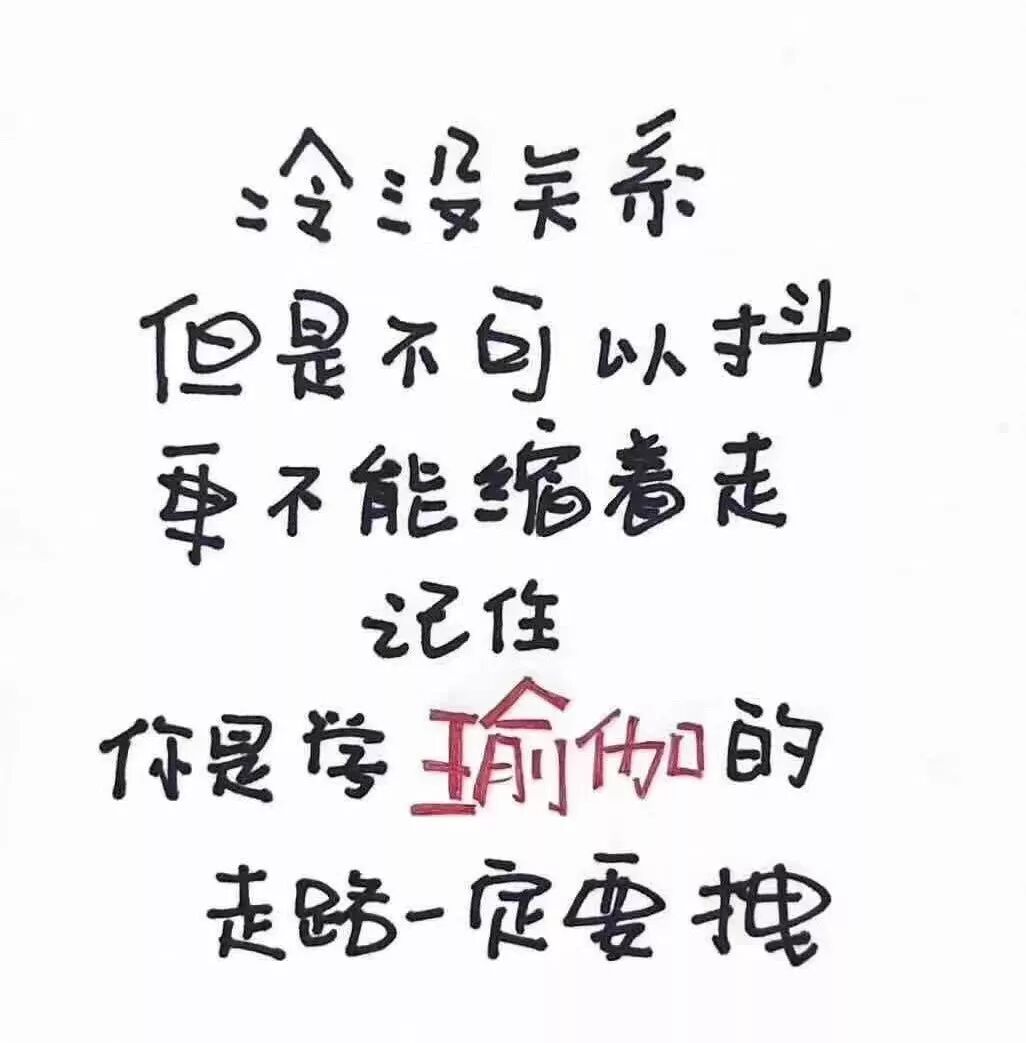 冷没关系
但是不可以抖
更不能缩着走
记住
你是学瑜伽的
走路一定要拽